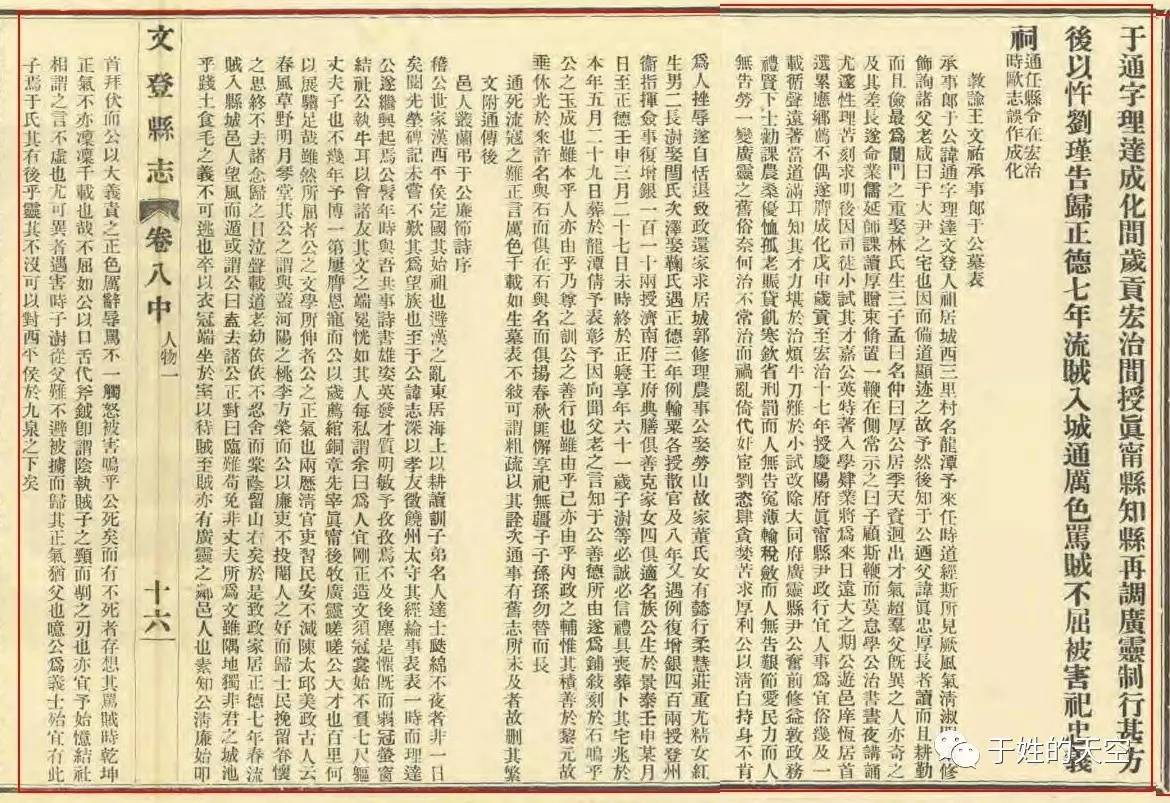 于通字理達成化間歲貢宏治間授眞甯縣知縣再調廣靈制行甚方
後以忤劉瑾告歸正德七年流賊入城通厲色罵賊不屈被害祀忠義
祠通任縣令在宏治
時歐志誤作成化
教諭王文祐承事郎于公墓表
承事郎于公諱通字理達文登人祖居城西三里村名龍潭予來任時道經斯所見厥風氣淸淑
修飾詢諸父老咸曰于大尹之宅也因而備道顯迹之故予然後知于公迺父諱眞忠厚長者讀而且耕勤
而且儉最爲閨門之重娶林氏生三子孟曰名仲曰厚公居季天資迥出才氣超羣父旣異之人亦奇之
及其差長遂命業儒延師課讀厚贈束脩置一鞭在側常示之曰子顧斯鞭而莫怠學公治書晝夜講誦
尤邃性理苦刻求明後因司徒小試其才嘉公英特著入學肄業將爲來日遠大之期公遊邑庠恆居首
選累應鄕薦不偶遂膺成化戊申歲貢至宏治十七年授慶陽府眞甯縣尹政行宜人事爲宜俗幾及一
載循聲遠著當道滿耳知其才力堪於治煩牛刀難於小試改除大同府廣靈縣尹公奮前修益敦政務
禮賢下士勤課農桑優恤孤老賑貸飢寒欽省刑罰而人無告寃薄輸稅斂而人無告艱節愛民力而人
無告勞一變廣靈之舊俗奈何治不常治而禍亂倚伏奸宦劉瑾恣肆貪婪苦求厚利公以淸白持身不肯
爲人挫辱遂自恬退致政還家求居城郭修理農事公娶勞山故家董氏女有懿行柔慧莊重尤精女紅
生男二長澍娶閆氏次澤娶鞠氏遇正德三年例輸粟各授散官及八年又遇例復增銀四百兩授登州
衞指揮僉事復增銀一百一十兩授濟南府王府典膳俱善克家女四俱適名族公生於景泰壬申某月
日至正德壬申三月二十七日未時終於正寢享年六十一歲子澍等必誠必信禮具喪葬卜其宅兆於
本年五月二十九日葬於龍潭倩予表彰予因向聞父老之言知于公善德所由遂爲鋪敘刻於石嗚乎
公之玉成也雖本乎人亦由乎乃尊之訓公之善行也雖由乎已亦由乎內政之輔惟其積善於黎元故
垂休光於來許名與石而俱在石與名而俱揚春秋匪懈享祀無疆子子孫孫勿替而長
通死流寇之難正言厲色千載如生墓表不敍可謂粗疏以其詮次通事有舊志所未及者故删其繁
文附通傳後
邑人叢蘭弔于公廉節詩序
稽公世家漢西平侯定國其始祖也避漢之亂東居海上以耕讀訓子弟名人達士颷綿不夜者非一日
矣閱先塋碑記未嘗不歎其爲望族也至于公諱志深以孝友徵饒州太守其經綸事表表一時而理達
公遂繼興起焉公髫年時與吾共事詩書雄姿英發才質明敏予孜孜焉不及後塵是懼旣而弱冠螢窗
結社公執牛耳以會諸友其文之端冕恍如其人每私謂余曰爲人宜剛正造文須冠裳始不貫七尺軀
丈夫子也不幾年予博一第屢膺恩寵而公以歲薦綰銅章先宰眞甯後牧廣靈嗟嗟公大才也百里何
以展驥足哉雖然所屈者公之文學所伸者公之正氣也兩歷淸官吏習民安不減陳太邱美政古人云
春風草野明月琴堂其公之謂與蓋河陽之桃李方榮而公以廉吏不投閹人之好而歸士民挽留眷懷
之思終不去諸念歸之日泣聲載道老幼依依不忍舍而棠蔭留山右矣於是致政家居正德七年春流
賊入縣城邑人望風而遁或謂公曰盍去諸公正對曰臨難苟免非丈夫所爲文雖隅地獨非君之城池
乎踐土食毛之義不可逃也卒以衣冠端坐於室以待賊至賊亦有廣靈之鄰邑人也素知公淸廉始叩
文登縣志 卷八中 人物一 十六
首拜伏而公以大義責之正色厲辭辱罵不一觸怒被害嗚乎公死矣而有不死者存想其罵賊時乾坤
正氣不亦凜凜千載也哉不屈如公以口舌代斧鉞卽謂陰執賊子之頸而剚之刃也亦宜予始憶結社
相謂之言不虛也尤可異者遇害時子澍從父難不避被擄而歸其正氣猶父也噫公爲義士殆宜有此
子焉于氏其有後乎靈其不沒可以對西平侯於九泉之下矣
于姓的天空